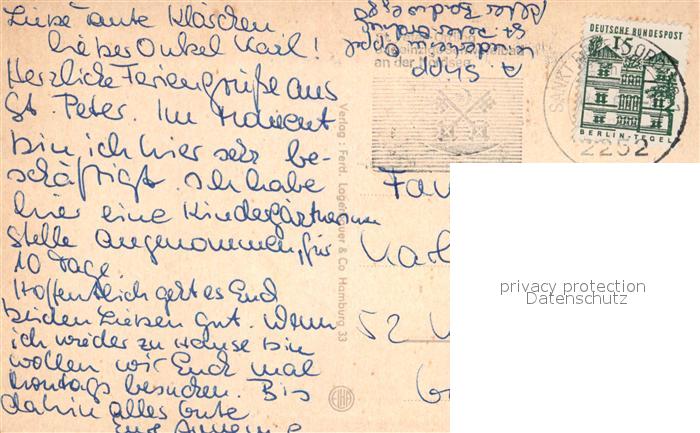 Liebe Tante Kläschen,
lieber Onkel Karl!
Herzliche Feriengrüße aus
St. Peter. Im Moment
bin ich hier sehr be-
schäftigt. Ich habe
hier eine Kindergärtnerinnen
stelle angenommen, für
10 Tage.
Hoffentlich geht es Euch
beiden Lieben gut. Wenn
ich wieder zu Hause bin
wollen wir Euch mal
montags besuchen. Bis
dahin alles Gute
Eure
St. Peter-Ording
Kinderheim
an der Nordsee
DEUTSCHE BUNDESPOST
15
BERLIN-TEGEL
SANKT PETER
2252
Verlag: Ferd. Lagerbauer & Co Hamburg 33
Fa
52
privacy protection
Datenschutz